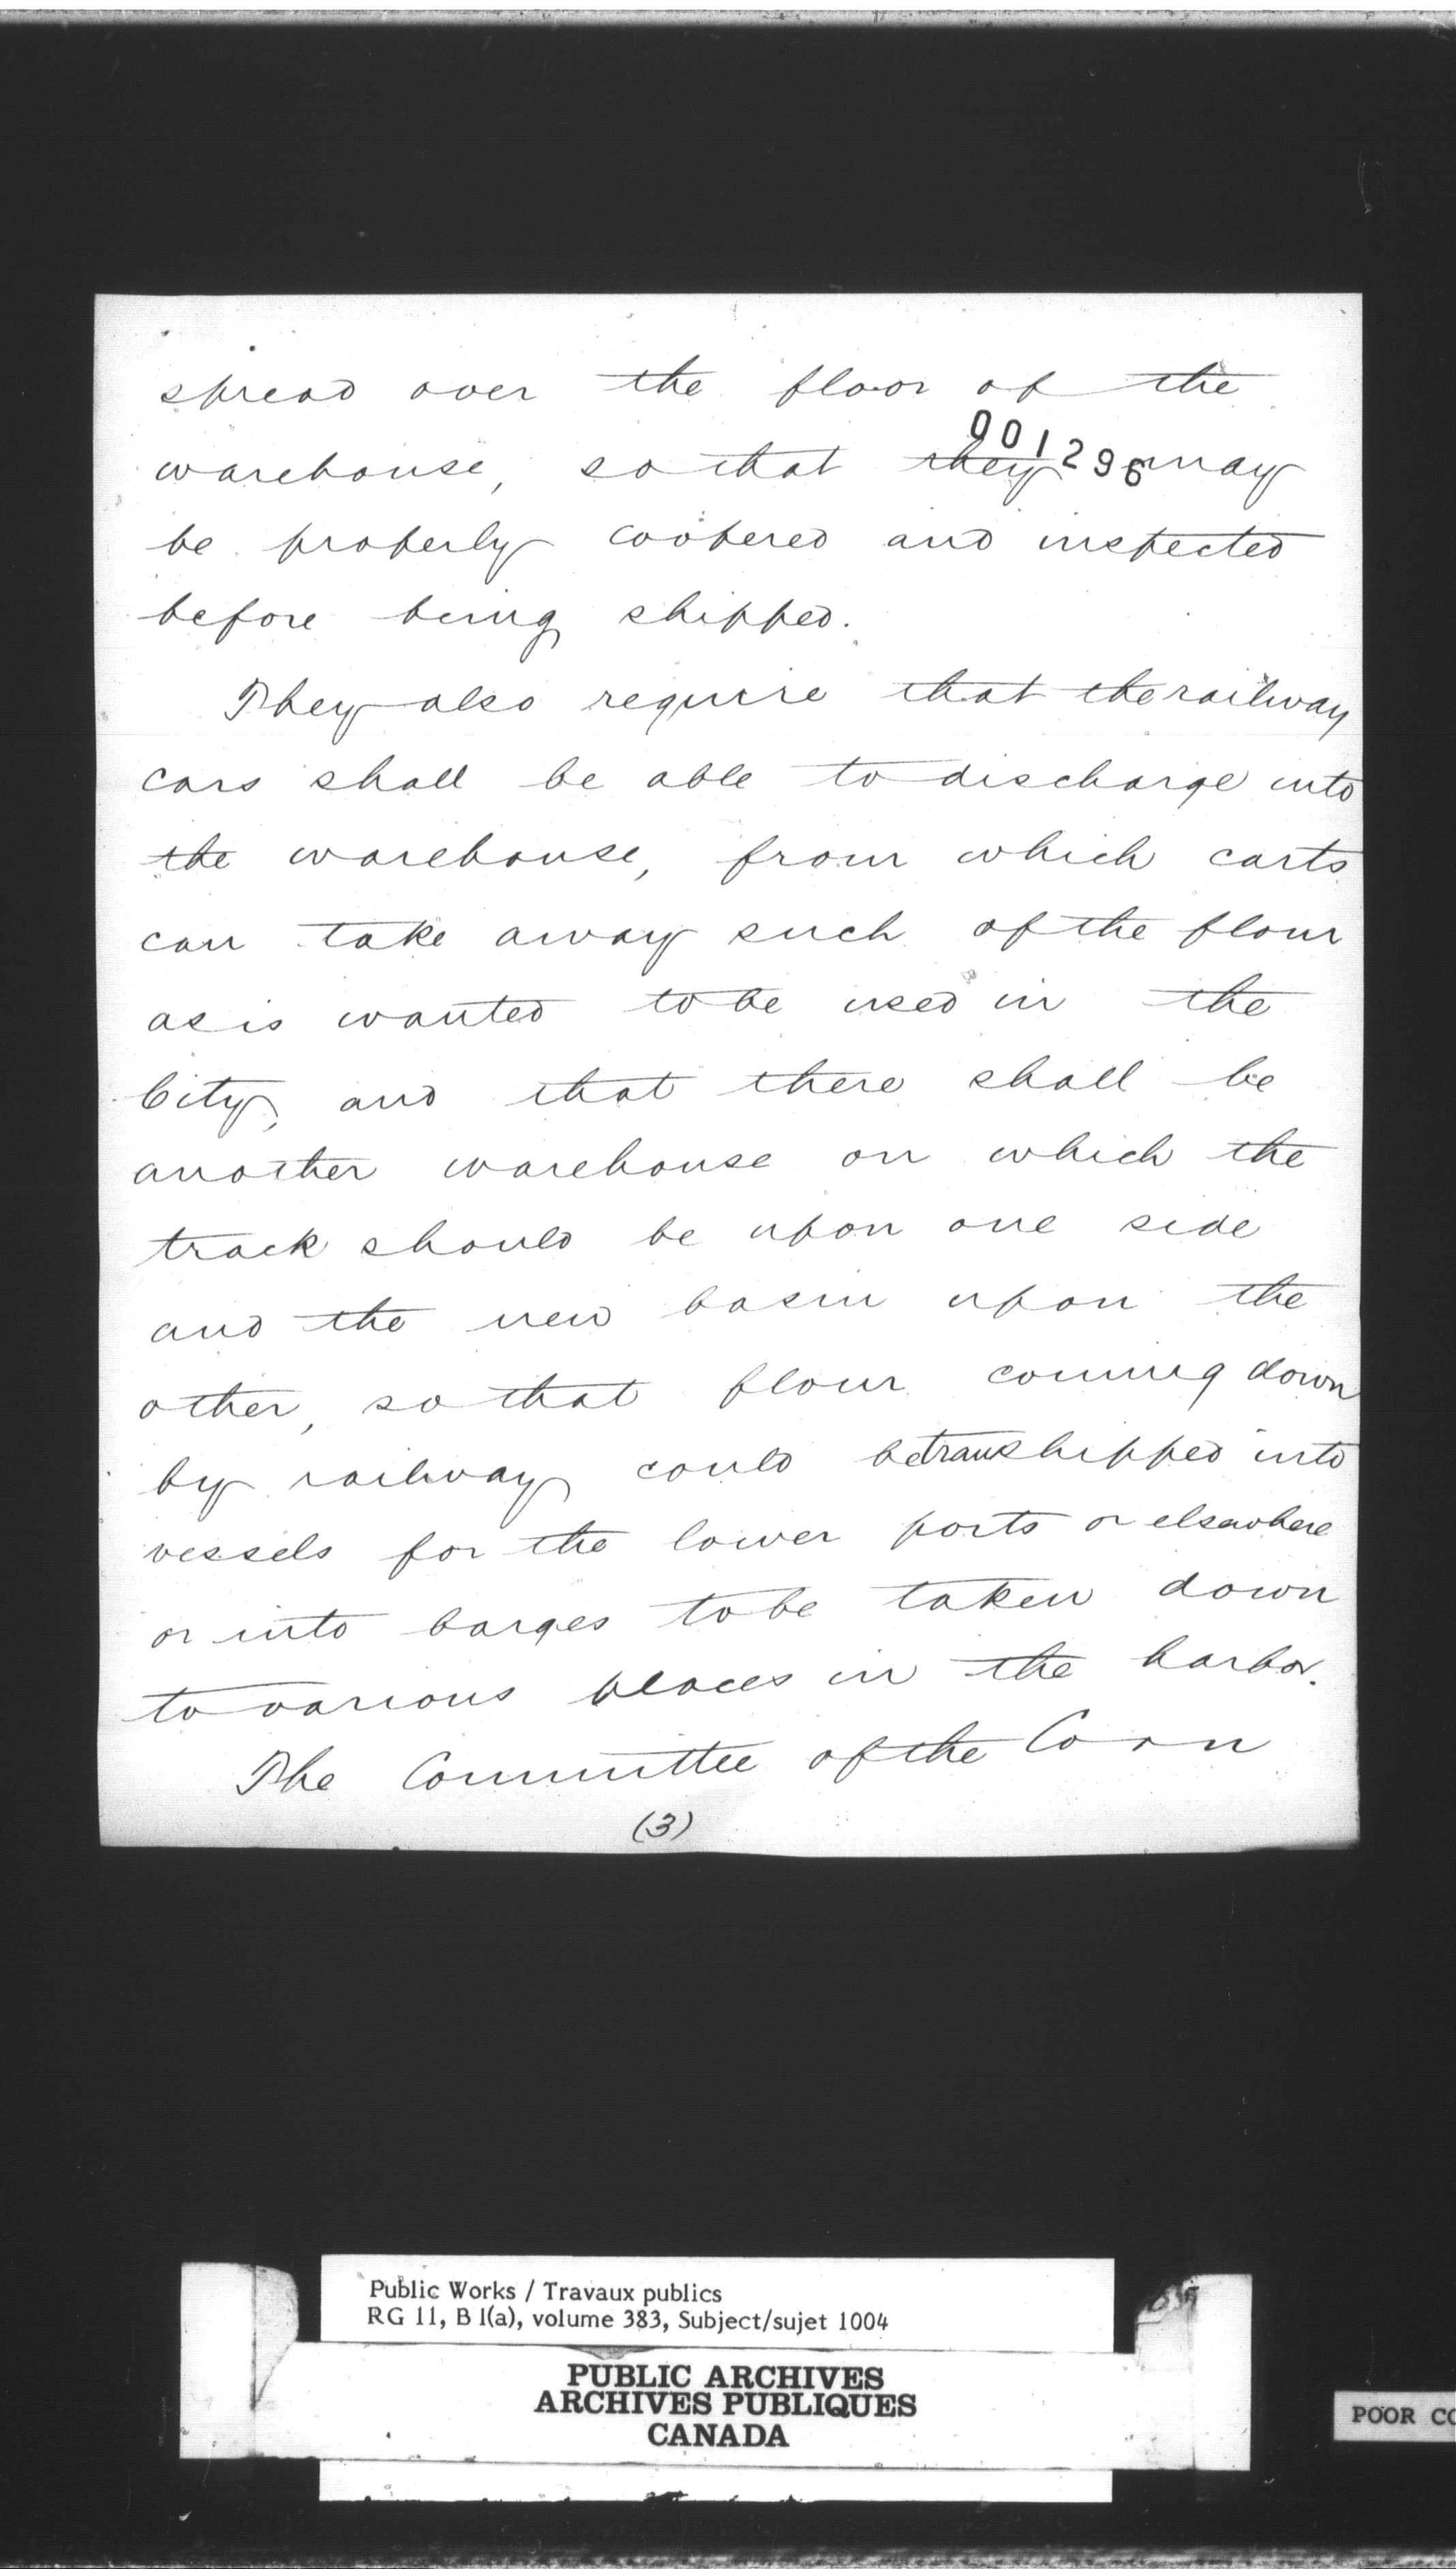 spread over the floor of the
001296
warehouse, so that they may
be properly coopered and inspected
before being shipped.
They also require that the railway
cars shall be able to discharge into
the warehouse, from which carts
can take away such of the flour
as is wanted to be used in the
City, and that there shall be
another warehouse on which the
track should be upon one side
and the new basin upon the
other, so that flour coming down
by railway could be transhipped into
vessels for the lower ports or elsewhere
or into barges to be taken down
to various places in the harbor.
The Committee of the Corn
(3)
Public Works / Travaux publics
RG 11, B 1(a), volume 383, Subject/sujet 1004
PUBLIC ARCHIVES
ARCHIVES PUBLIQUES
CANADA
POOR CO